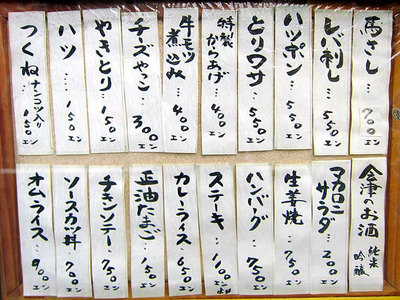 馬さし… 700エン
レバ刺し… 550エン
ハツポン… 550エン
とりワサ… 550エン
特製からあげ… 400エン
牛モツ煮込み… 400エン
チーズやっこ… 300エン
やきとり… 150エン
ハツ… 150エン
つくね ナンコツ入り 150エン
会津のお酒 純米 吟醸
マカロニサラダ… 200エン
生姜焼… 750エン
ハンバーグ… 750エン
ステーキ… 1100エンより
カレーライス… 650エン
正油たまご… 150エン
チキンソテー… 750エン
ソースカツ丼… 700エン
オムライス… 900エン